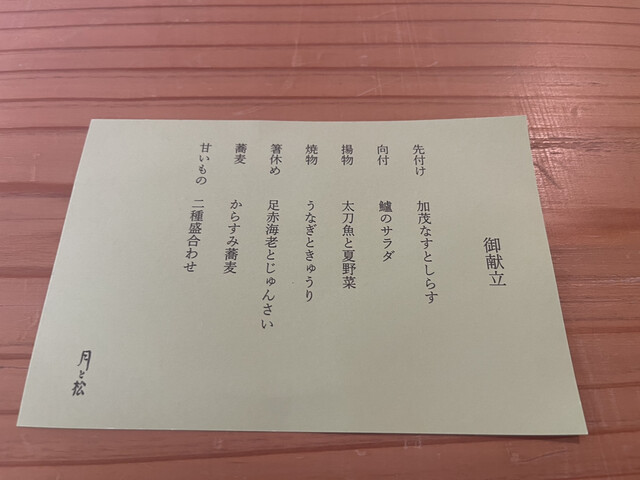 御献立
先付け　加茂なすとしらす
向付　鱸のサラダ
揚物　太刀魚と夏野菜
焼物　うなぎときゅうり
箸休め　足赤海老とじゅんさい
蕎麦　からすみ蕎麦
甘いもの　二種盛合わせ
月と松